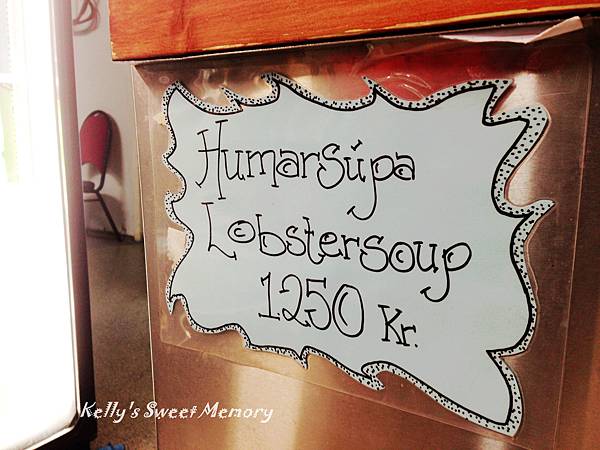 Humarsúpa
Lobstersoup
1250 Kr.
Kelly's Sweet Memory